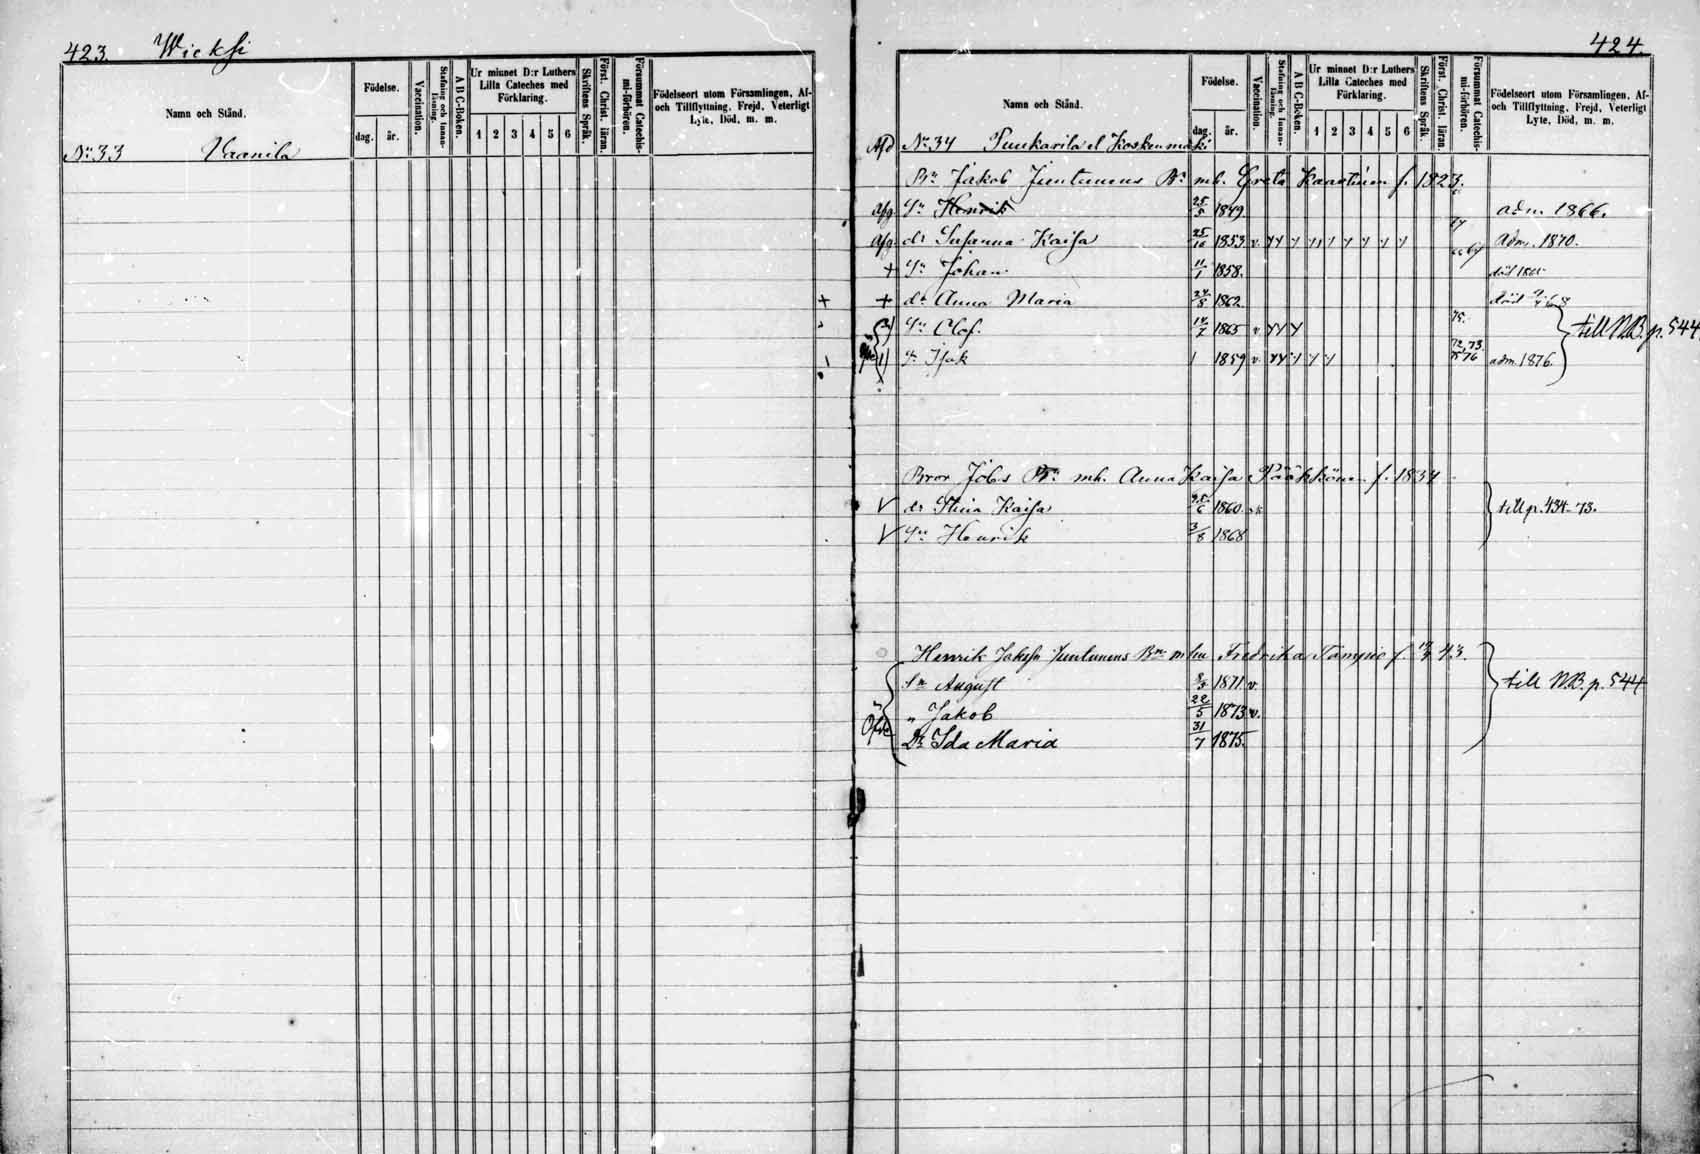 423. Wieksi
Namn och Stånd.
Födelse.
dag. år.
Vaccination.
Stafning och Innan-läsning.
A B C-Boken.
Ur minnet D:r Luthers Lilla Cateches med Förklaring.
1 2 3 4 5 6
Skriftens Språk.
Först. Christ. läran.
Försummat Catechis-mi-förhören.
Födelseort utom Församlingen, Af- och Tillflyttning, Frejd, Veterligt Lyte, Död, m. m.
No 33 Vaanila
424.
Namn och Stånd.
Födelse.
dag. år.
Vaccination.
Stafning och Innan-läsning.
A B C-Boken.
Ur minnet D:r Luthers Lilla Cateches med Förklaring.
1 2 3 4 5 6
Skriftens Språk.
Först. Christ. läran.
Försummat Catechis-mi-förhören.
Födelseort utom Församlingen, Af- och Tillflyttning, Frejd, Veterligt Lyte, Död, m. m.
No 34 Puukarila el Koskenmäki
Bn Jakob Juntunens Bn mh. Greta Kaartinen f. 1823.
Sn Henrik 25/5 1849. adm. 1866.
dr Susanna Kaisa 25/10 1853 v. Adm. 1870.
+ Sn Johan. 11/1 1858.
+ + dr Anna Maria 24/8 1862. död
Sn Olof. 14/7 1865 v. 75. till NB. p. 544.
1) Sn Isak 1 1859 v. 72, 73. 75 76 adm. 1876.
Bror Jobs Bn mh. Anna Kaisa Pääkkönen f. 1834
dr Stina Kaisa 25/6 1860 till p. 434-73.
Sn Henrik 3/8 1868
Henrik Jakobss Juntunens Bn m hu Fredrika Tämpie f. 43.
Sn August 1871 v. till NB. p. 544
" Jakob 22/5 1873 v.
Dr Ida Maria 31/7 1875.